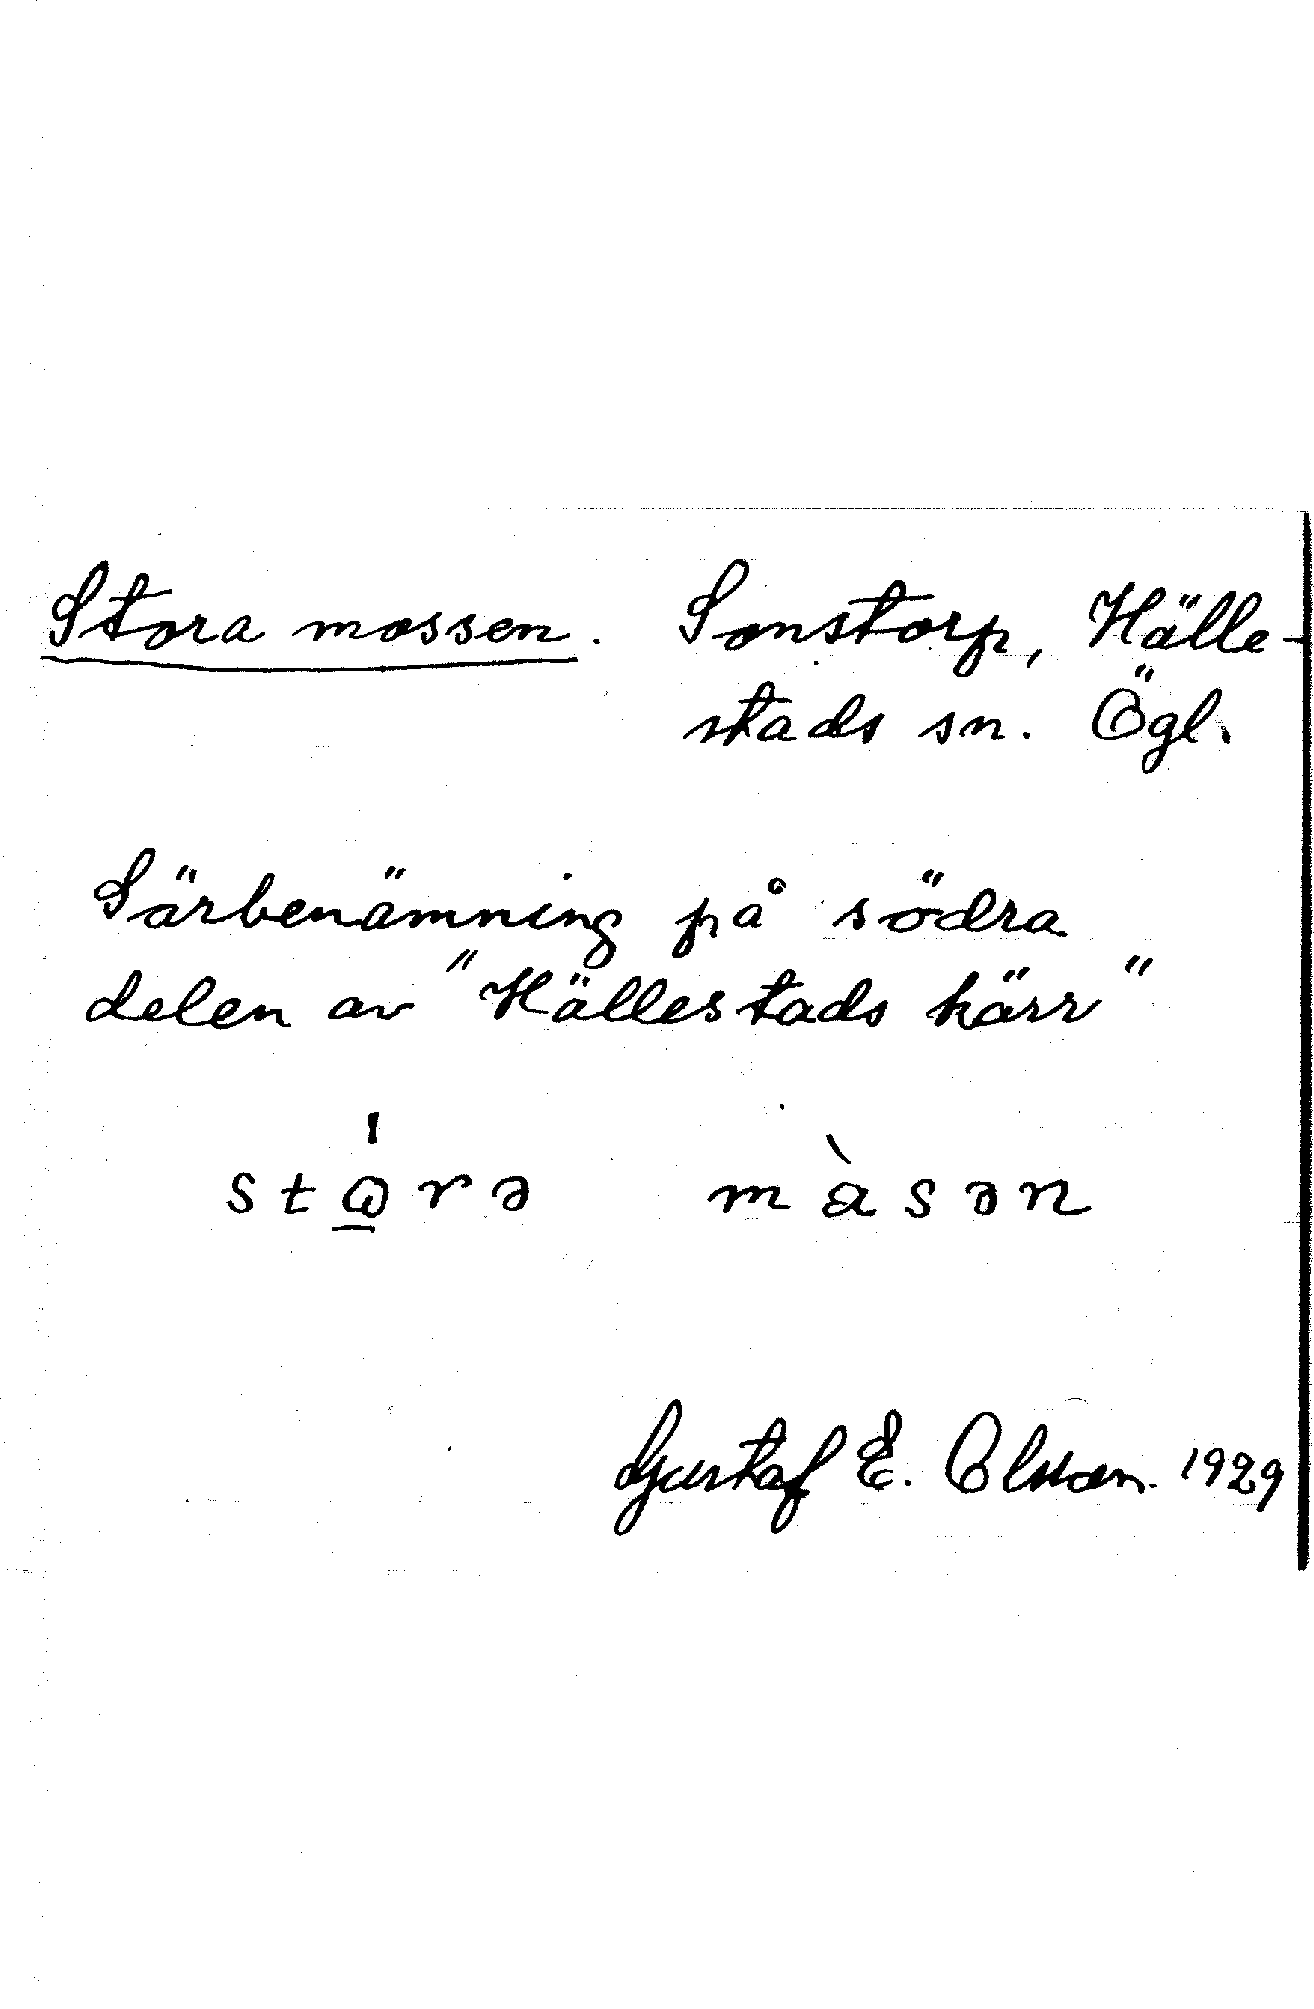 Stora mossen. Sonstorp, Hälle-
stads sn. Ögl.
Särbenämning på södra
delen av "Hällestads kärr"
stώ̲rə màsən
Gustaf E. Olsson. 1929